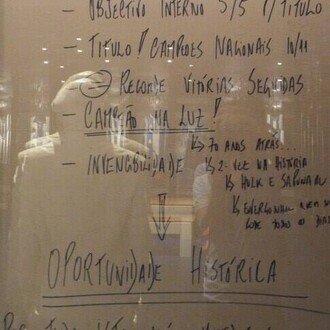 - OBJECTIVO INTERNO 5/5 P/ TÍTULO
- TITULO! CAMPEÕES NACIONAIS 10/11
- RECORDE VITÓRIAS SEGUIDAS
- CAMPEÃO NA LUZ!
↳ 70 ANOS ATRÁS...
- INVENCIBILIDADE
↳ 2ª VEZ NA HISTÓRIA
↳ HULK E SAPUNARU
↳ 
⇓
OPORTUNIDADE HISTÓRICA